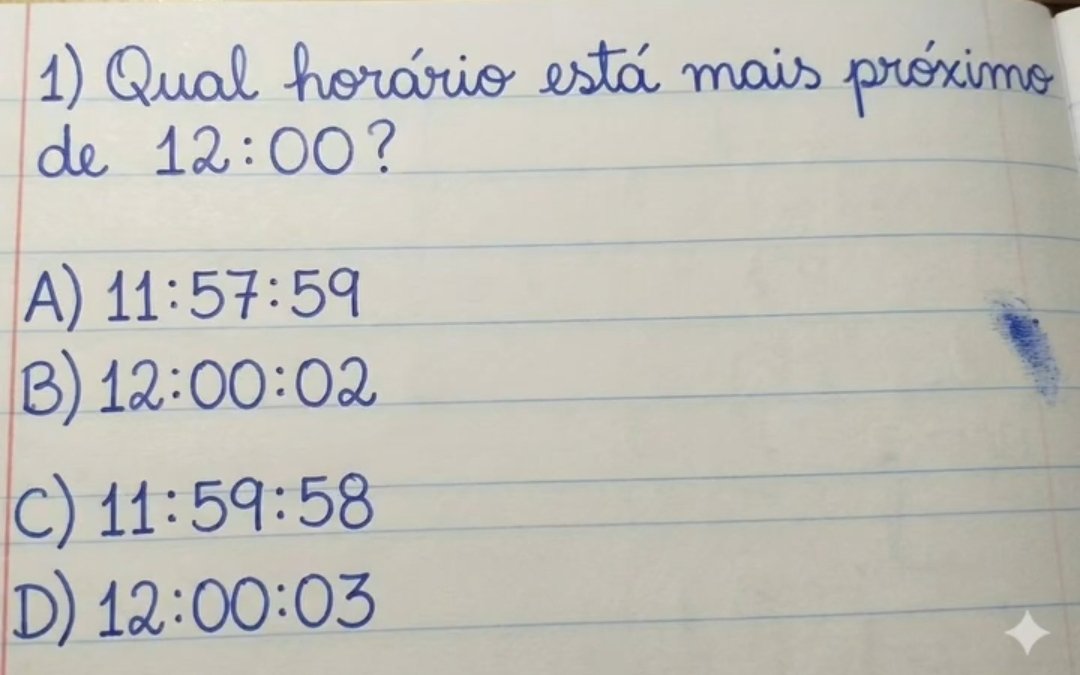 1) Qual horário está mais próximo
de 12:00?
A) 11:57:59
B) 12:00:02
C) 11:59:58
D) 12:00:03